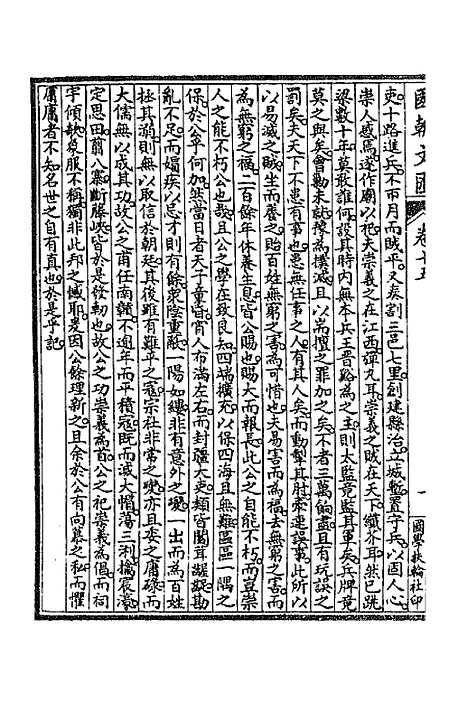 吏十路進兵不币月而賊平又奏割三邑七里創建縣治立城蟄置守兵以固人心
崇人感焉遂作廟以祀夫崇義之在江西彈丸耳崇義之賊在天下纖芥耳然已跳
梁數十年莫敢誰何設其時内無本兵王晉谿為之主則太監竟監其軍矣兵牌竟
莫之與矣會勦未就撫為撲滅且以為擅之罪加之矣不者三萬餉盡且有玩誤之
罰矣夫天下不患有事患無任事之人有其人矣而動掣其肘牽連誤事此所以
以易滅之賊坐而養之貽百姓無窮之害為可惜也夫易害而為福去無窮之害而
為無窮之福二百餘年休養生息皆公賜也賜大而報長此公之自能不朽而豈崇
人之能不朽公也哉且公之學在致良知四端擴充以保四海且無難區區一隅之
保於公乎何加然當日者天子童昏宵人布滿左右而封疆大吏類皆闒茸齷齪勘
亂不足而媢疾以忌才則有餘眾陰重蔽一陽如縷非有意外之變一出而為百姓
拯其溺則無以取信於朝廷其後雖有難平之寇宗社非常之變亦且委之庸碌而
大儒無以成其功故公之首任南贛不逾年而平積寇既而滅大帽蕩三浰擒宸濠
定思田翦八寨斷藤峽皆於是發軔也故公之功崇義為首公之祀崇義為倡而祠
宇傾欹象服不稱獨非此邦之慽耶是因公餘理新之且余於公有向慕之私而懼
庸庸者不知名世之自有真也於是乎記
國朝文匯 卷十五
一 國學扶輪社印